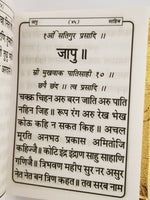 जापु ( ४५ ) साहिब
१ओं सतिगुर प्रसादि ॥
जापु॥
श्री मुखवाक पातिसाही १० ॥
छपै छंद ॥ त्व प्रसादि ॥
चक्क्र चिहन अरु बरन जाति अरु पाति
नहिन जिह॥ रूप रंग अरु रेख भेख
कोऊ कहि न सकत किह॥ अचल
मूरति अनभउ प्रकास अमितोजि
कहिज्जै॥ कोटि इंद्र इंद्राण साहु साहाणि
गणिज्जै॥ त्रिभवण महीप सुर नर असुर
नेत नेत बन त्रिण कहत॥ तव सरब नाम